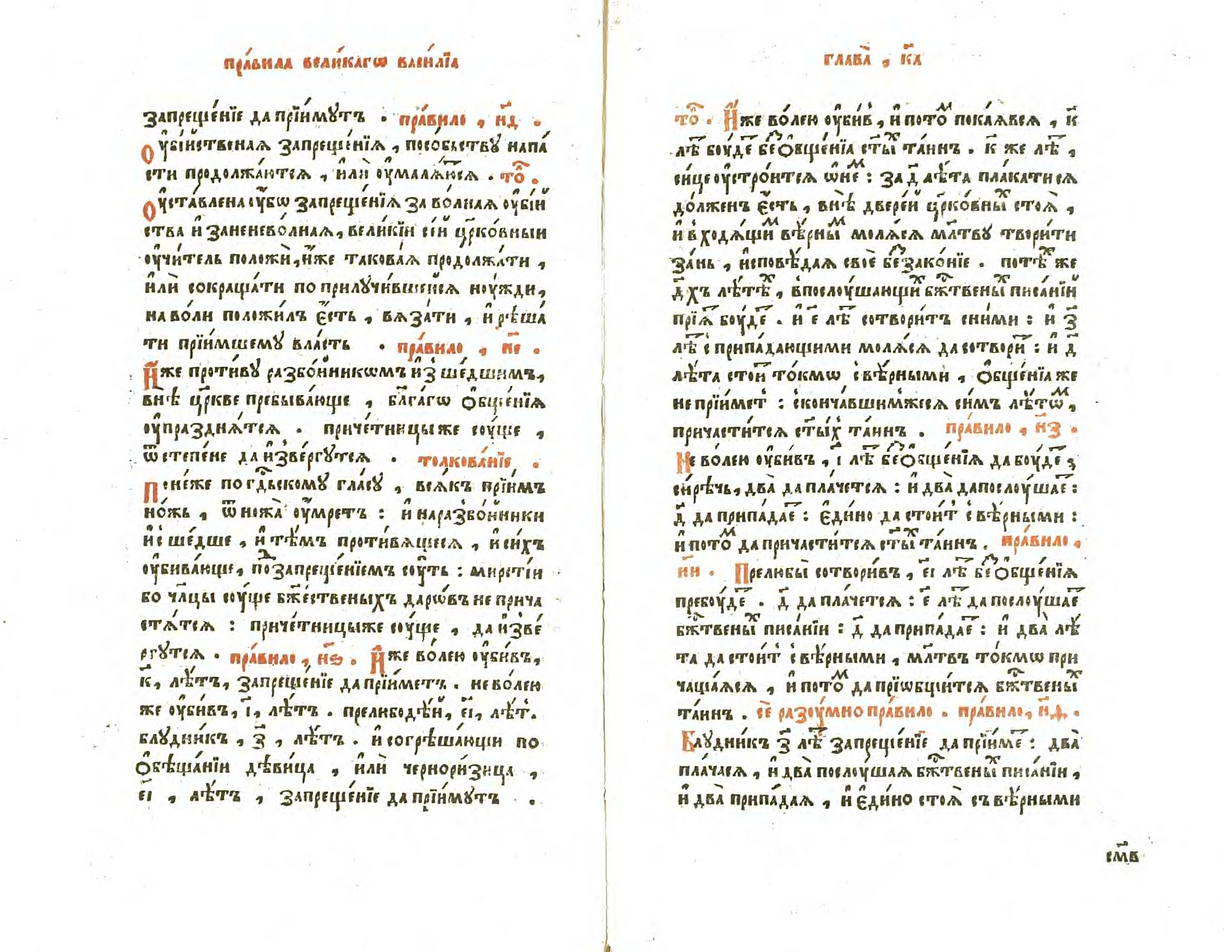 пра́вила вели́кагѡ васи́лїа
запреще́нїе да прїи́мутъ . пра́вило , н҃д .
Оу҆бі́йственая запреще́нїѧ , посо́бьству напа́
сти продолжа́ютсѧ , и҆лѝ оу҆малѧ́юсѧ . то҃ .
Оу҆ста́влена оу҆́бѡ запреще́нїѧ за во́лнаѧ оу҆бі́й
ства и҆ заневово́лнаѧ , вели́кїи се́й цр҃ко́вныи
оу҆чи́тель положѝ , и҆́же такова́ѧ продолжа́ти ,
и҆лѝ сокраща́ти по прилучи́вшейсѧ ноу́жди ,
на во́ли положи́лъ є҆́сть , вѧза́ти , и҆ рѣша́
ти прїи́мшему вла́сть . пра́вило , н҃е .
И҆̀же проти́ву разбо́йникѡмъ и҆зше́дшимъ ,
внѣ̀ цр҃кве пребыва́юще , бл҃га́гѡ ѻ҆бще́нїѧ
оу҆праздня́тсѧ . приче́тницы же су́ще ,
ѿ степе́не да и҆зве́ргутсѧ . толкова́нїе .
Поне́же по гд҃ьскому гла́су , всѧ́къ прїи́мъ
но́жь , ѿ ножа̀ оу҆́мретъ : и҆ на разбо́йники
и҆сше́дше , и҆ тѣ́мъ противѧ́щесѧ , и҆ си́хъ
оу҆бива́юще , по́ запреще́нїемъ су́ть : ми́рстїи
бо чл҃цы су́ще бж҃е́ственыхъ даро́въ не прича
стѧ́тсѧ : приче́тницы же су́ще , да и҆зве́
ргутсѧ . пра́вило , н҃ѕ . И҆̀же во́лею оу҆би́въ ,
к҃ , лѣ́тъ , запреще́нїе да прїи́метъ . не во́лею
же оу҆би́въ , і҃ , лѣ́тъ . прелюбодѣ́й , є҃і , лѣ́т .
блудни́къ , з҃ , лѣ́тъ . и҆ согрѣша́ющи по
ѻ҆бѣща́нїи дѣви́ца , и҆лѝ черно́ризица ,
є҃і , лѣ́тъ , запреще́нїе да прїи́мутъ .
глава̀ , к҃а
то҃ . И҆̀же во́лею оу҆би́в , и҆ пото́м покаѧ́всѧ , к҃
лѣ́т бу́де без̾ ѻ҆бще́нїѧ ст҃ы́х та́инъ . к҃ же лѣ́т ,
си́це оу҆стро́итсѧ ѡ҆ не́м : за д҃ лѣ́та пла́катисѧ
до́лженъ є҆́сть , внѣ̀ двере́й цр҃ко́вных стоѧ̀ ,
и҆ входѧ́щим вѣ́рным молѧ́сѧ мл҃тву твори́ти
за́нь , и҆сповѣ́даѧ своѐ беззако́нїе . пото́м же
д҃ хъ лѣ́тѣх , в послу́шающих бж҃твеных писа́нїй
прїѧ́т бу́де . и҆ є҃ лѣ́т сотвори́тъ с ни́ми : и҆ з҃
лѣ́т с припа́дающими молѧ́сѧ да сотвори́т : и҆ д҃
лѣ́та стои́т то́кмѡ с вѣ́рными , ѻ҆бще́нїѧ же
не прїи́мет : сконча́вшимжесѧ си́мъ лѣ́тѡм ,
причасти́тсѧ ст҃ы́х та́инъ . пра́вило , н҃з .
Не во́лею оу҆би́въ , і҃ лѣ́т без̾ ѻ҆бще́нїѧ да бу́де ,
си́рѣчь , два̀ да пла́четсѧ : и҆ два̀ да послу́шае :
д҃ да припа́дае : є҆ди́но да стои́т с вѣ́рными :
и҆ пото́м да причасти́тсѧ ст҃ы́х та́инъ . пра́вило ,
н҃и . Прелюбы̀ сотвори́въ , є҃і лѣ́т без̾ ѻ҆бще́нїѧ
пребу́де . д҃ да пла́четсѧ : є҃ лѣ́т да послу́шае
бж҃твеных писа́нїи : д҃ да припа́дае : и҆ два̀ лѣ́
та да стои́т с вѣ́рными , мл҃твъ то́кмѡ при
чаща́ѧсѧ , и҆ пото́м да прїѡбщи́тсѧ бж҃твеных
та́инъ . се́ разу́мно пра́вило . пра́вило , н҃ѳ .
Блудни́къ з҃ лѣ́т запреще́нїе да прїи́ме : два̀
пла́часѧ , и҆ два̀ послу́шаѧ бж҃твеных писа́нїи ,
и҆ два̀ припа́даѧ , и҆ є҆ди́но стоѧ̀ съ вѣ́рными
см҃в